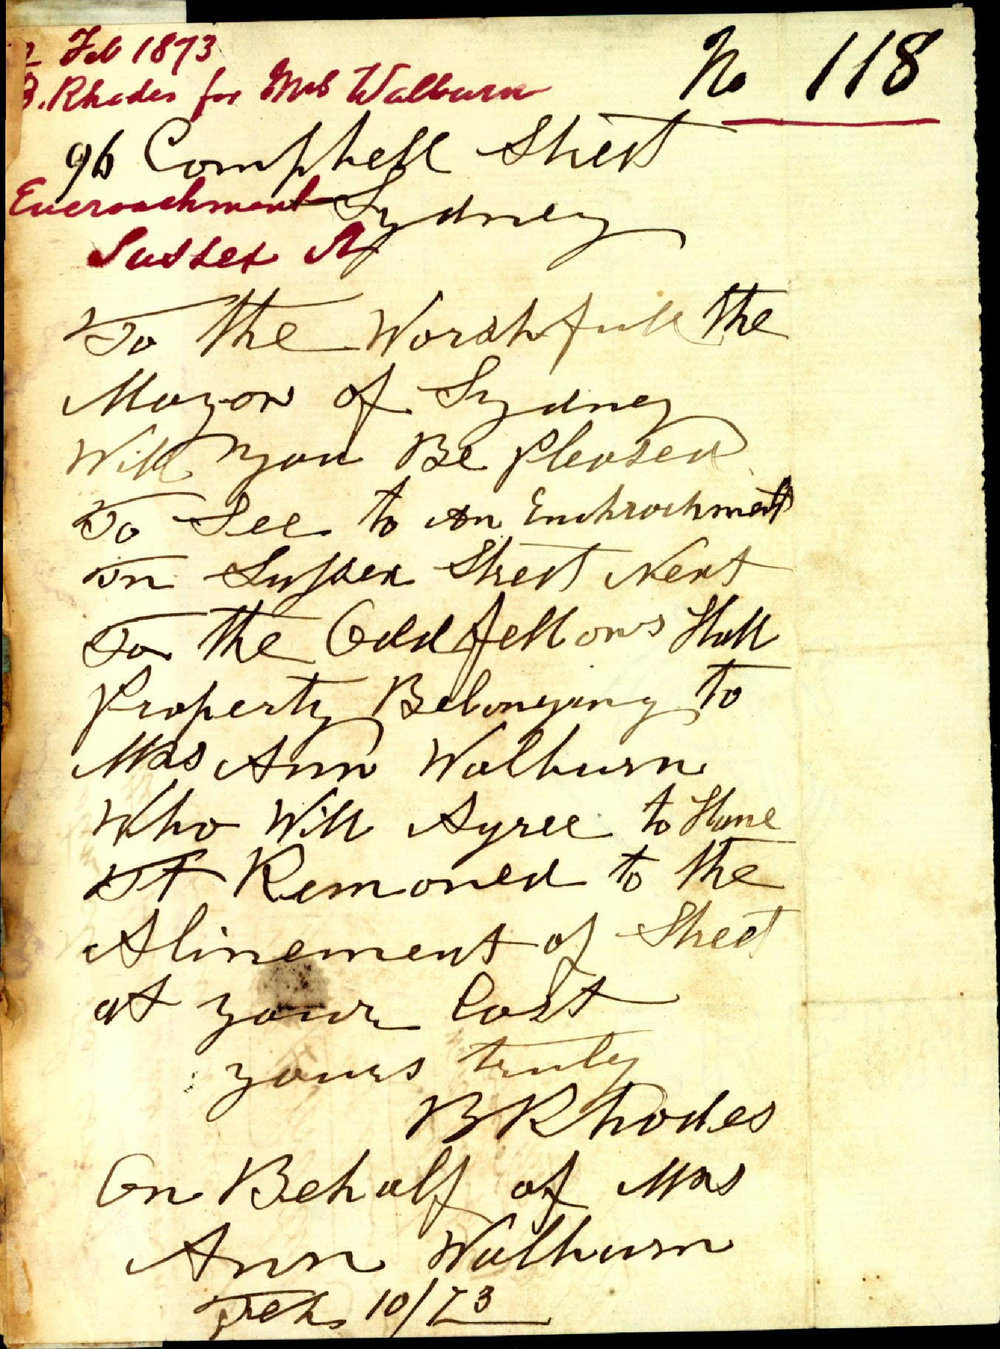 Feb 1873
No 118
B. Rhodes for Mrs Walburn
96 Campbell Street
Encroachment Sydney
Sussex St
To the Worshfull the
Mayor of Sydney
Will you Be Pleased
To See to An Enchrochment
In Sussex Street Next
To the Oddfellows Hall
Property Belonging to
Mrs Ann Walburn
Who Will Agree to Have
It Removed to the
Alinement of Street
at your Cost
yours truly
B Rhodes
On Behalf of Mrs
Ann Walburn
Feb 10/73